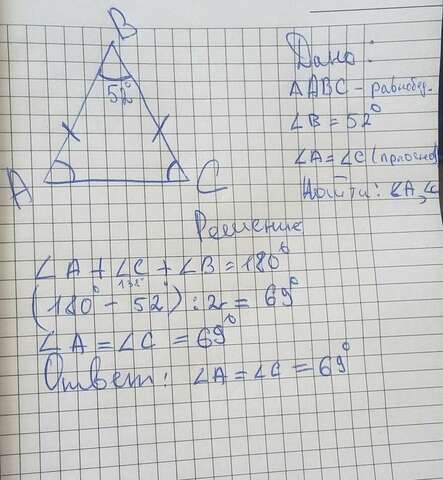 B
52°
A
C
Дано:
ΔABC - равнобед.
∠B = 52°
∠A = ∠C (при основ)
Найти: ∠A, ∠C
Решение
∠A + ∠C + ∠B = 180°
(180° - 52°) : 2 = 69°
∠A = ∠C = 69°
Ответ: ∠A = ∠C = 69°